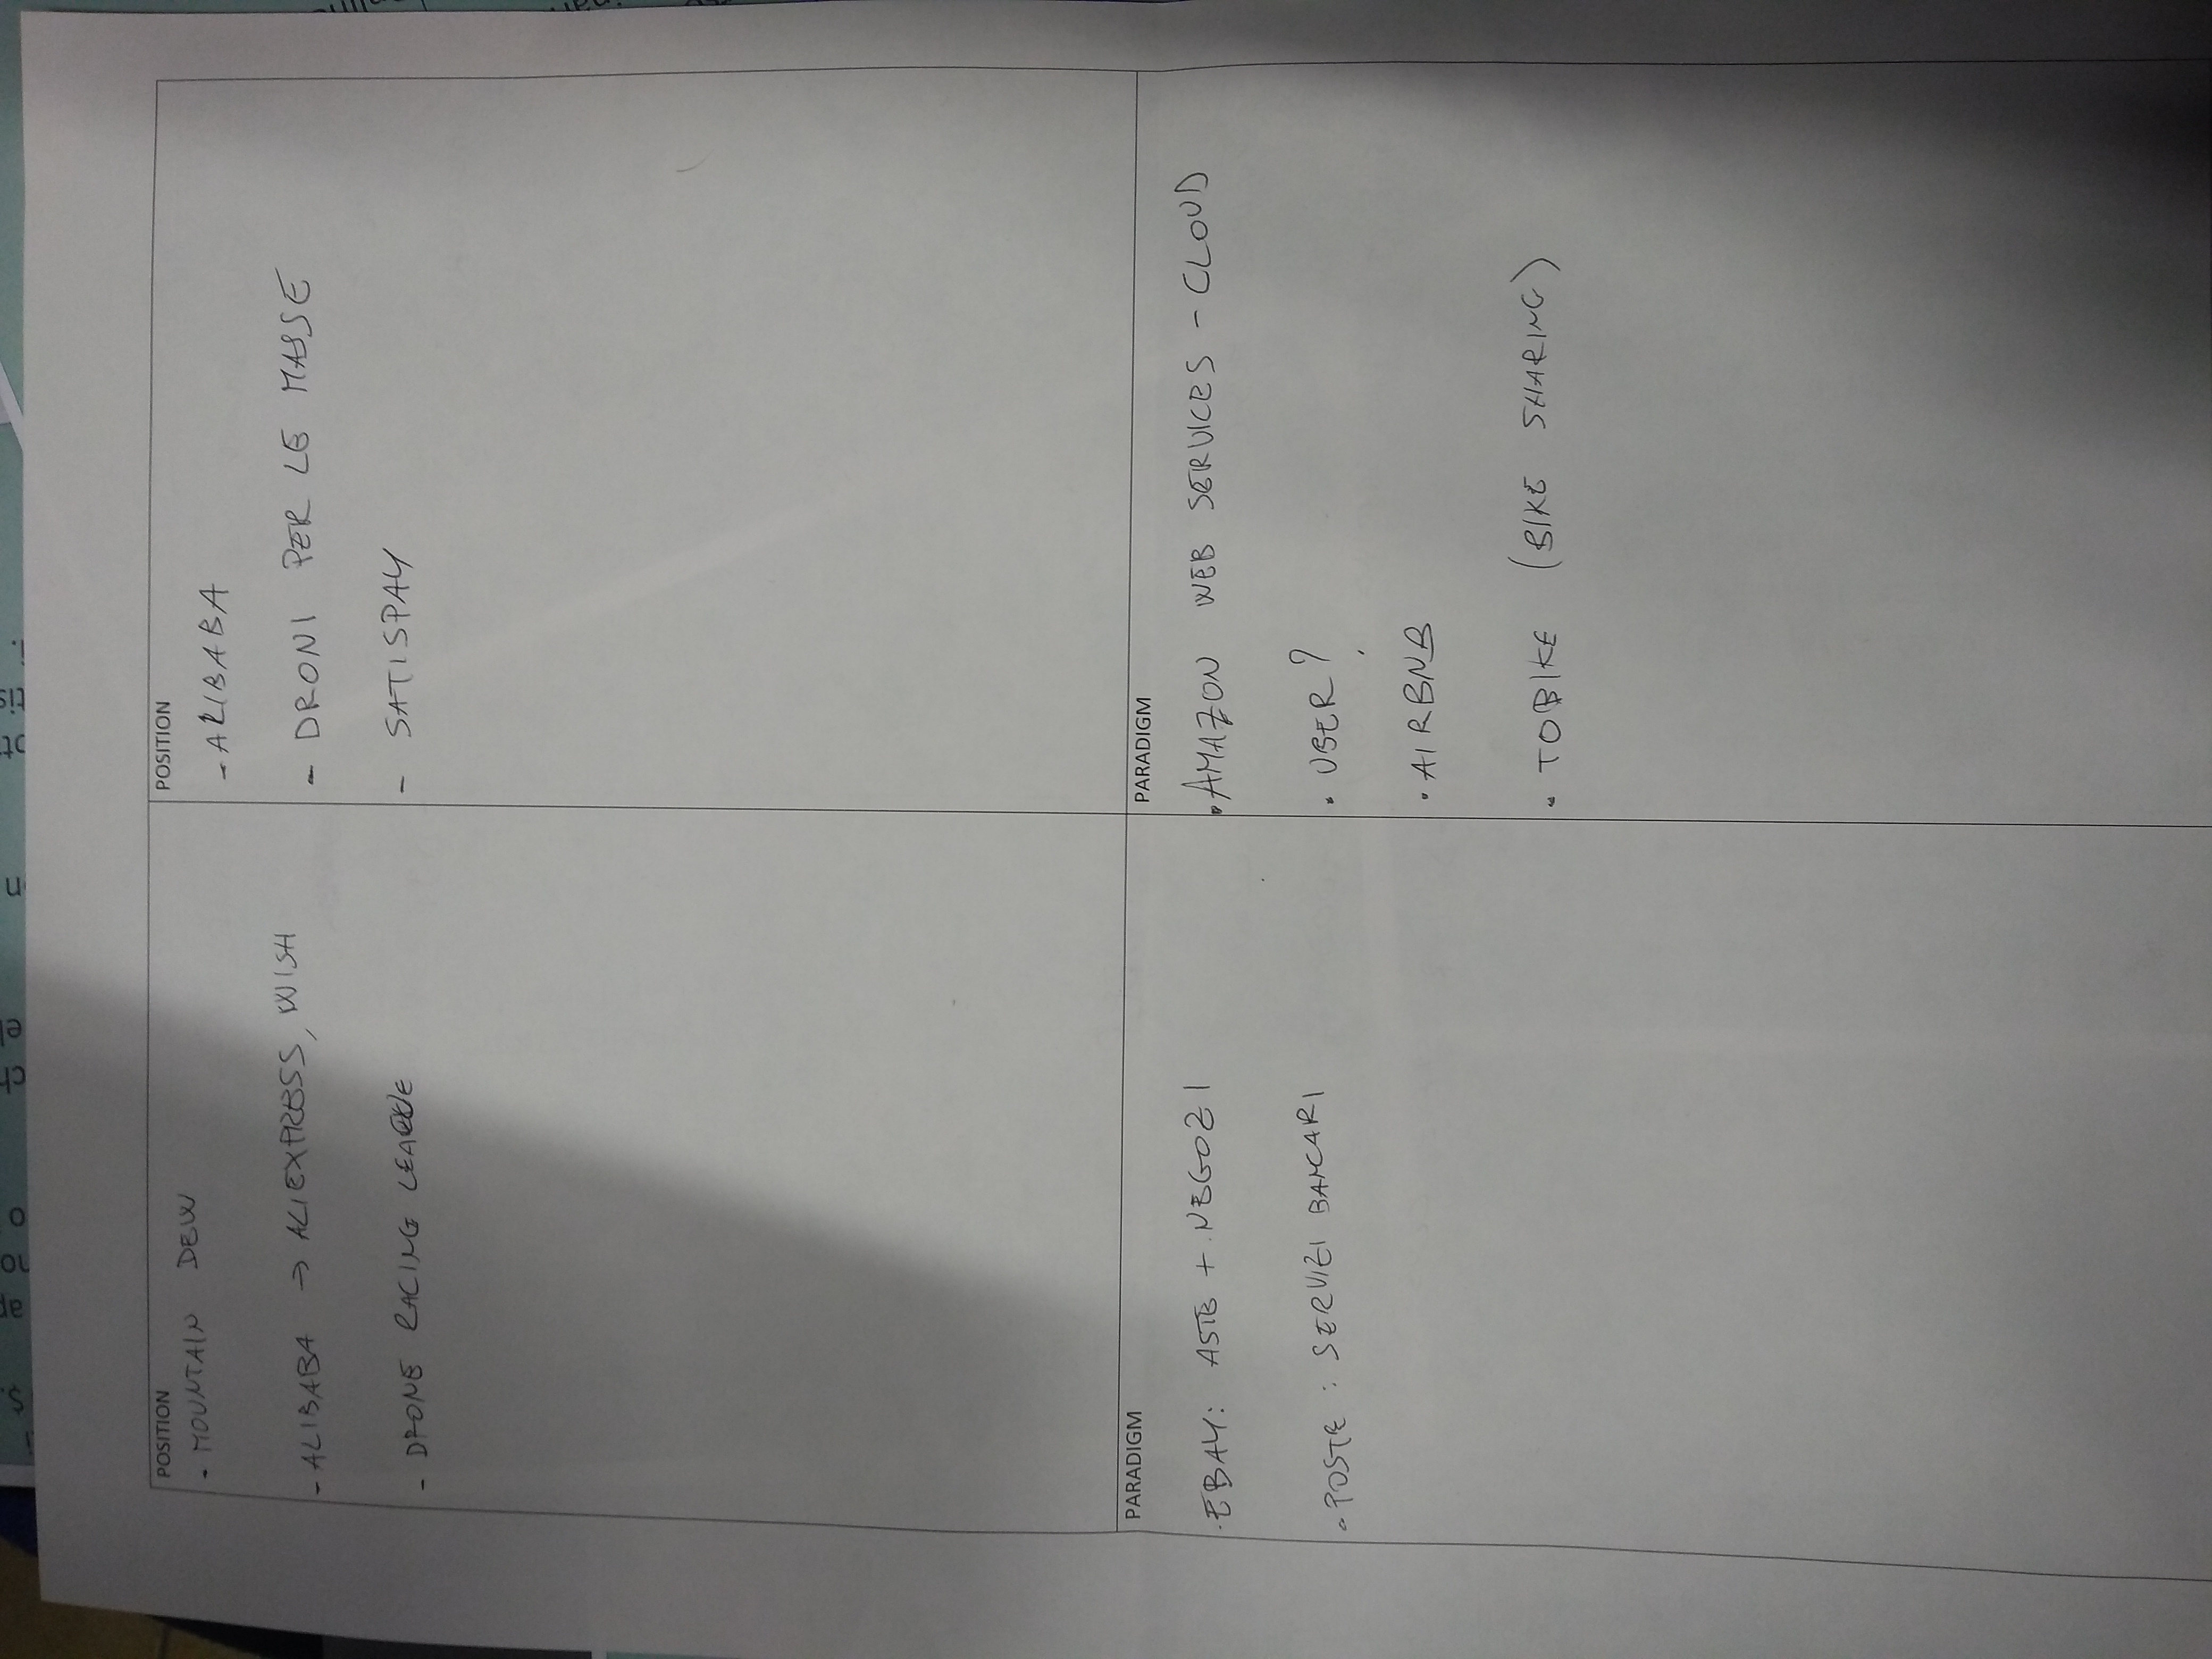 POSITION
- MOUNTAIN DEW
- ALIBABA → ALIEXPRESS, WISH
- DRONE RACING LEAGUE
POSITION
- ALIBABA
- DRONI PER LE MASSE
- SATISPAY
PARADIGM
· EBAY: ASTE + NEGOZI
· POSTE : SERVIZI BANCARI
PARADIGM
· AMAZON WEB SERVICES - CLOUD
· UBER?
· AIRBNB
· TOBIKE (BIKE SHARING)